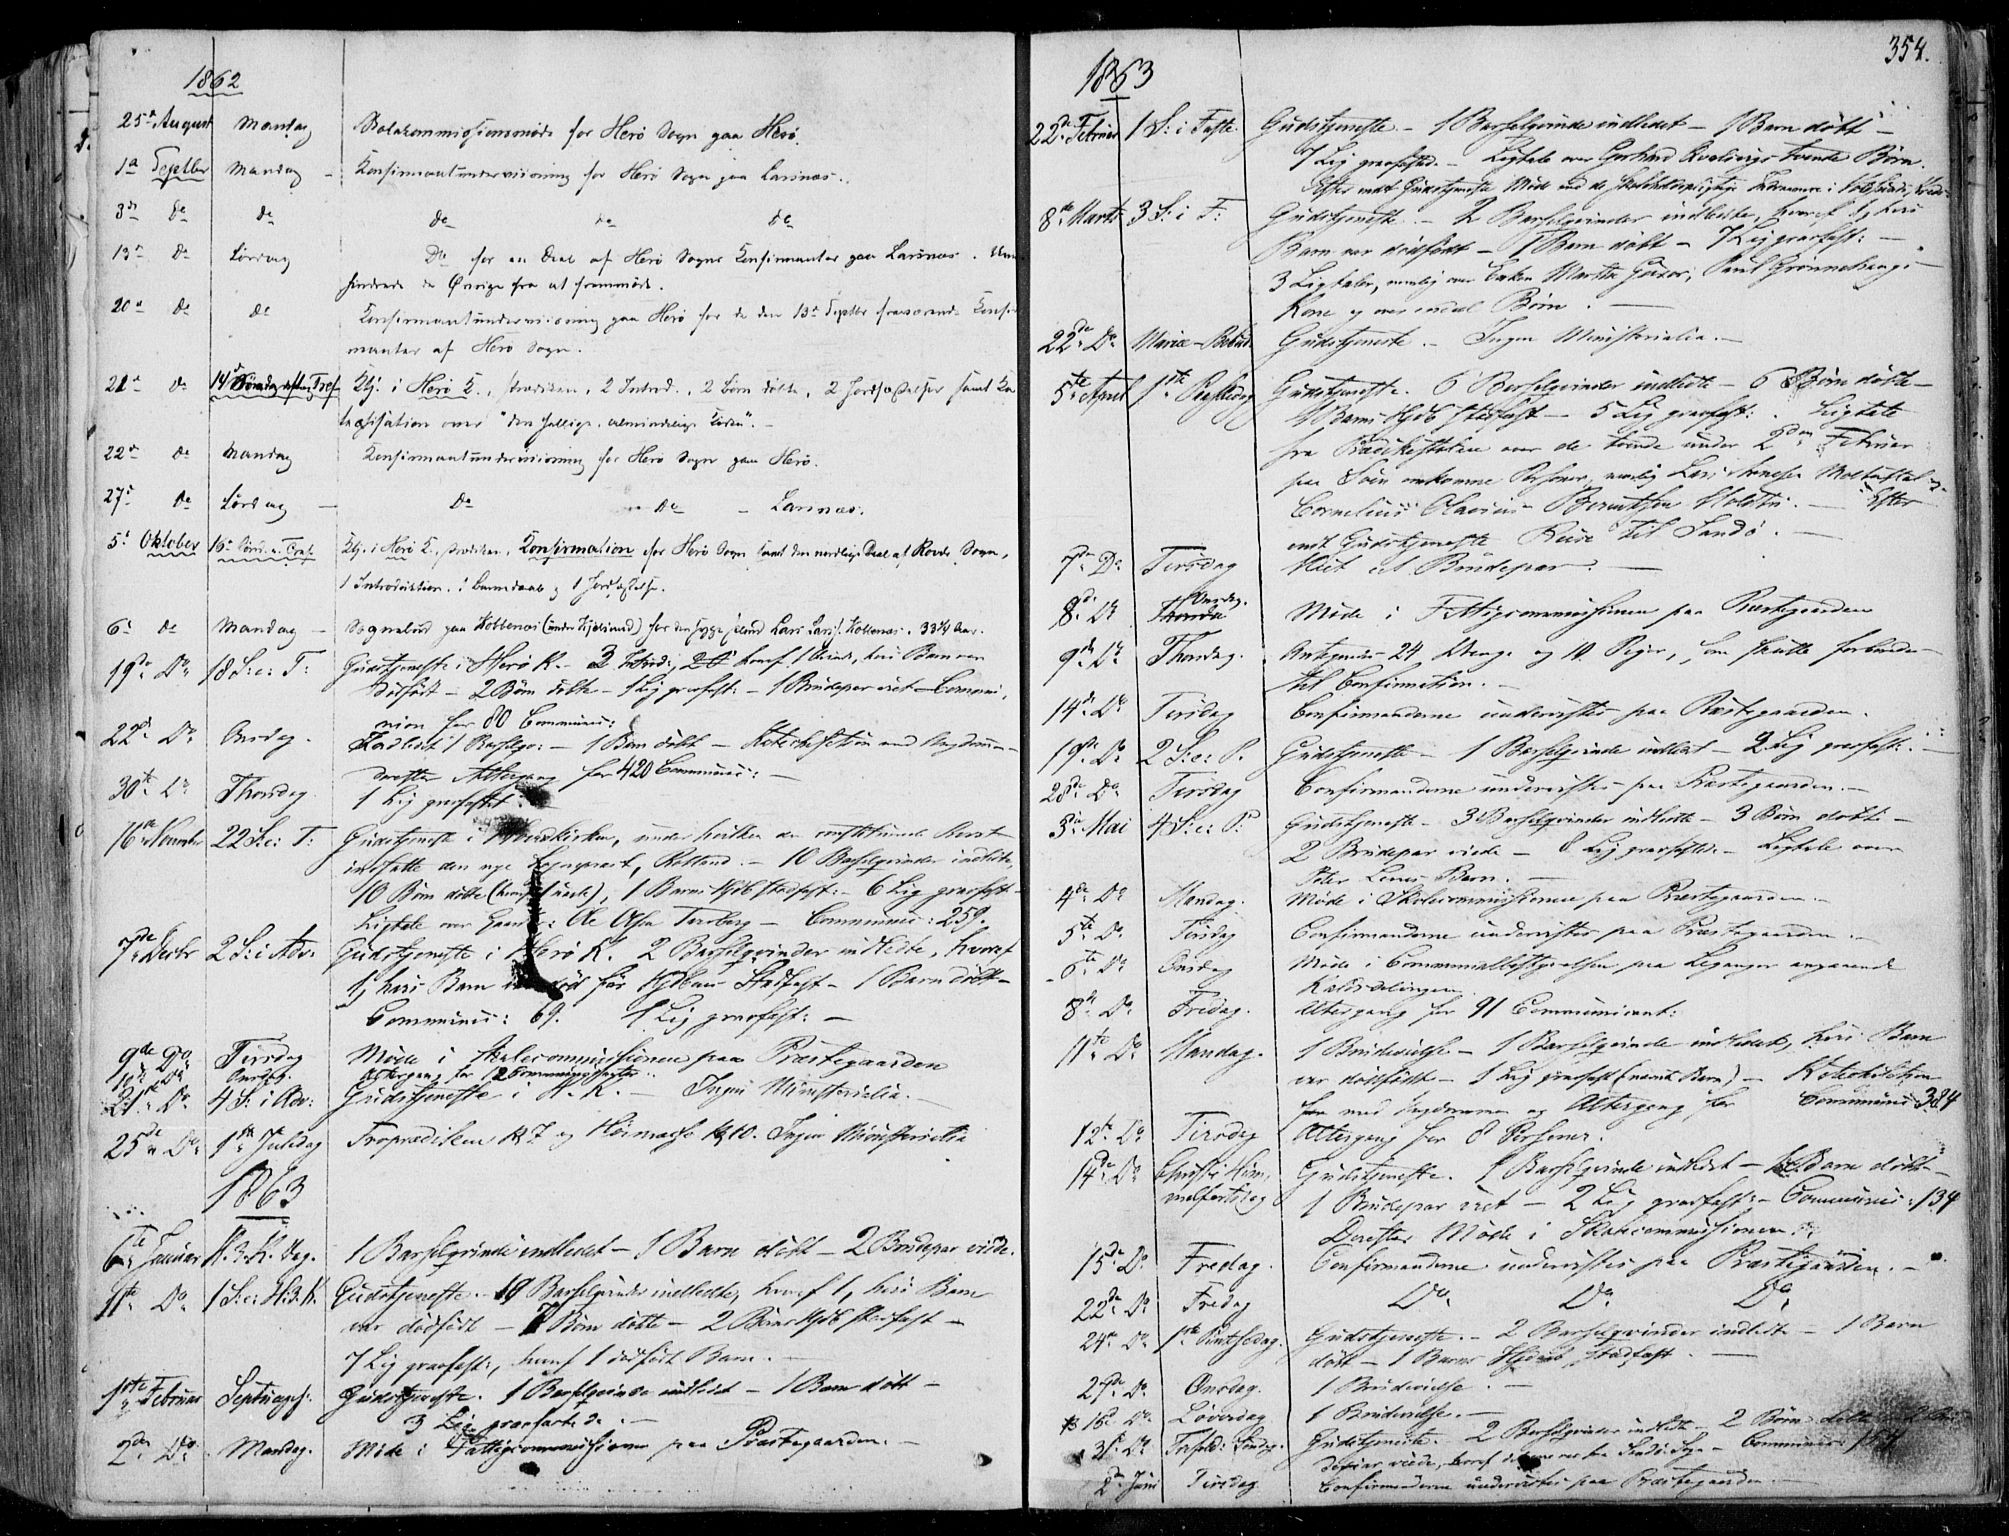 1862
25de August Mandag Skolekommissionsmöde for Herö Sogn paa Herö.
1ste Septbr Mandag – Konfirmantundervisning for Herö Sogn paa Larsnæs.
3de do do do do do
13de do Lördag Do for en Deel af Herö Sogns Konfirmanter paa Larsnæs.
hindrede de Övrige fra at fremmöde.
20de do do Konfirmantundervisning paa Herö for de den 13de Septbr fraværende Konfir-
manter af Herö Sogn.
21de do 14de Söndag efter Tref. Gtj. i Herö K., Prædiken, 2 Introd., 2 Börn döbte, 2 Jordfæstelser samt Ka-
techisation over "den hellige almindelige Kirke".
22de do Mandag Konfirmantundervisning for Herö Sogn paa Herö.
27de do Lördag – Do – Do – Larsnæs.
5te Oktober 16de Sönd. e. Tref. Gtj. i Herö K., Prædiken, Konfirmation for Herö Sogn samt den nordlige Deel af Rovde Sogn,
1 Introduktion, 1 Barnedaab og 1 Jordfæstelse.
6te do Mandag – Sognebud paa Koldenæs for den syge Lars Larss. Koldenæs, 33¼ Aar.
19de Do 18 S: e: T: Gudstjeneste i Herö K. – 3 Introd:, hvoraf 1 Qvinde, hvis Barn var
dödfödt – 2 Börn döbte – 1 Lig graafæst: – 1 Brudepar viet – Commu-
nion for 80 Communic:
22de Do Onsdag. Indledt 1 Barselqv: – 1 Barn döbt – Katechisation med Ungdommen –
derefter Altergang for 420 Communic: –
30te Do Thorsdag 1 Lig graafæstet. –
16de November 22 S: e: T: Gudstjeneste i Hovedkirken, under hvilken den constituerede Provst
indsatte den nye Sognepræst, Rolland. – 10 Barselqvinder indledte,
10 Börn döbte (hvoraf 1 uægte), 1 Barns Hjdb stadfæst: – 6 Lig graafæst –
Ligtale over Ole Olsen – Communic: 259.
7de Decbr 2 S: i Adv: Gudstjeneste i Herö K. 2 Barselqvinder indledte, hvoraf
1, hvis Barn var död för Hjdbens Stadfæst – 1 Barn döbt –
Communic: 69. 1 Lig graafæst: –
9de Do Tirsdag Möde i Skolecommissionen paa Præstegaarden
10de Do Onsdag. Altergang for 12 Communicanter.
21de Do 4 S: i Adv: Gudstjeneste i H. K. – Ingen Ministerialia. –
25de Do 1ste Juledag Froprædiken Kl 7 og Höimesse Kl 10. Ingen Ministerialia
1863
6te Januar H. 3. K. Dag. 1 Barselqvinde indledet – 1 Barn döbt – 2 Brudepar viede.
11te Do 1 S: e: H. 3. K. Gudstjeneste. – 10 Barselqvinder indledte, hvoraf 1, hvis Barn
var dödfödt – 7 Börn döbte – 2 Börns Hjdb stadfæst –
7 Lig graafæst:, hvoraf 1 dödfödt Barn. –
1ste Februar Septuages: Gudstjeneste. 1 Barselqvinde indledet – 1 Barn döbt –
3 Lig graafæstede. –
2den Do Mandag. Möde i Fattigcommissionen paa Præstegaarden. –
354.
1863
22de Februar 1 S: i Faste. Gudstjeneste – 1 Barselqvinde indledet – 1 Barn döbt –
7 Lig graafæsted. – Ligtale over Gerhard Qvalsvigs tvende Börn.
Efter endt Gudstjeneste Möde med de Skoleholdspligtige Indvaanere i
8de Marts 3 S: i F: Gudstjeneste. – 2 Barselqvinder indledte, hvoraf 1, hvis
Barn var dödfödt – 1 Barn döbt – 7 Lig graafæst: –
3 Ligtaler, nemlig over Enken Martha Gurskø, Paul Grönnehaugs
Kone og Börn. –
22de Do Mariæ-Bebud. Gudstjeneste. – Ingen Ministerialia. –
5te April 1ste Paaskedag Gudstjeneste. 6 Barselqvinder indledte – 6 Börn döbte –
1 Barns Hjdb stadfæst – 5 Lig graafæst: . Ligtale
fra Prædikestolen over de tvende under 2den Februar
paa Söen omkomne Personer, nemlig Lars Moltustad og
Cornelius Olavius Berntsen – Efter
endt Gudstjeneste Reise til Sandö. –
7de Do Tirsdag Viet et Brudepar. –
8de Do Onsdag. Möde i Fattigcommissionen paa Præstegaarden
9de Do Thorsdag. Antegnede 24 Drenge og 10 Piger, som skulle forberedes
til Confirmation. –
14de Do Tirsdag Confirmanderne undervistes paa Præstegaarden.
19de Do 2 S: e: P. Gudstjeneste – 1 Barselqvinde indledt – 2 Lig graafæst: –
28de Do Tirsdag Confirmanderne undervistes paa Præstegaarden. –
3die Mai 4 S: e: P: Gudstjeneste – 3 Barselqvinder indledte – 3 Börn döbte –
2 Brudepar viede – 8 Lig graafæstede – Ligtale over
Barn. –
4de Do Mandag. Möde i Skolecommissionen paa Præstegaarden. –
5te Do Tirsdag Confirmanderne undervistes paa Præstegaarden. –
6te Do Onsdag Möde i Communalbestyrelsen paa Leganger angaaende
Kaldsdelingen
8de Do Fredag. Altergang for 91 Communicant:
11te Do Mandag. 1 Brudevielse – 1 Barselqvinde indledet, hvis Barn
var dödfödt – 1 Lig graafæst (nævnte Barn) – Katechisation
med Ungdommen og Altergang for Communic: 384
12te Do Tirsdag Altergang for 8 Personer.
14de Do Christi Him- Gudstjeneste. 1 Barselqvinde indledet – Barn döbt –
melfartsdag 1 Brudepar viet – 2 Lig graafæst: – Communic: 134
Derefter Möde i Skolecommissionen.
15de Do Fredag. Confirmanderne undervistes paa Præstegaarden. –
22de Do Fredag Do Do Do
24de Do 1ste Pintsedag. Gudstjeneste. – 2 Barselqvinder indledte – 1 Barn
döbt – 1 Barns Hjdaab stadfæst. –
27de Do Onsdag. 1 Brudevielse. –
16de Do Löverdag 1 Brudevielse. –
31te Do Trefold: Söndag. Gudstjeneste. – 2 Barselqvinder indledte – 2 Börn döbte
viede, hvoraf Sandö Sogn – Communic:
2den Juni Tirsdag Confirmanderne undervistes paa Præstegaarden. –